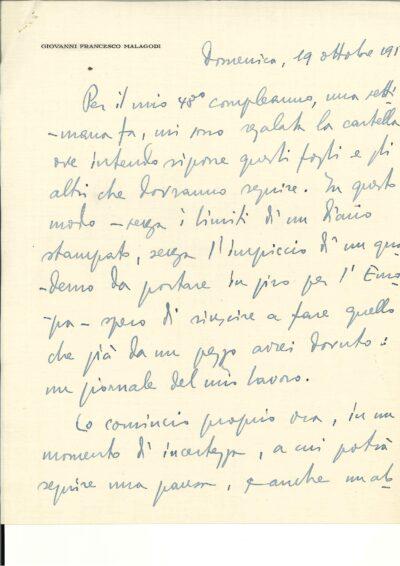 GIOVANNI FRANCESCO MALAGODI
Domenica, 19 ottobre 195
Per il mio 48° compleanno, una setti
-mana fa, mi sono regalata la cartella
ove intendo riporre questi fogli e gli
altri che dovranno seguire. In questo
modo – senza i limiti di un diario
stampato, senza l'impiccio di un qua
-derno da portare in giro per l'Euro
-pa – spero di riuscire a fare quello
che già da un pezzo avrei dovuto:
un giornale del mio lavoro.
Lo comincio proprio ora, in un
momento di incertezza, a cui potrà
seguire una pausa, e anche un ab